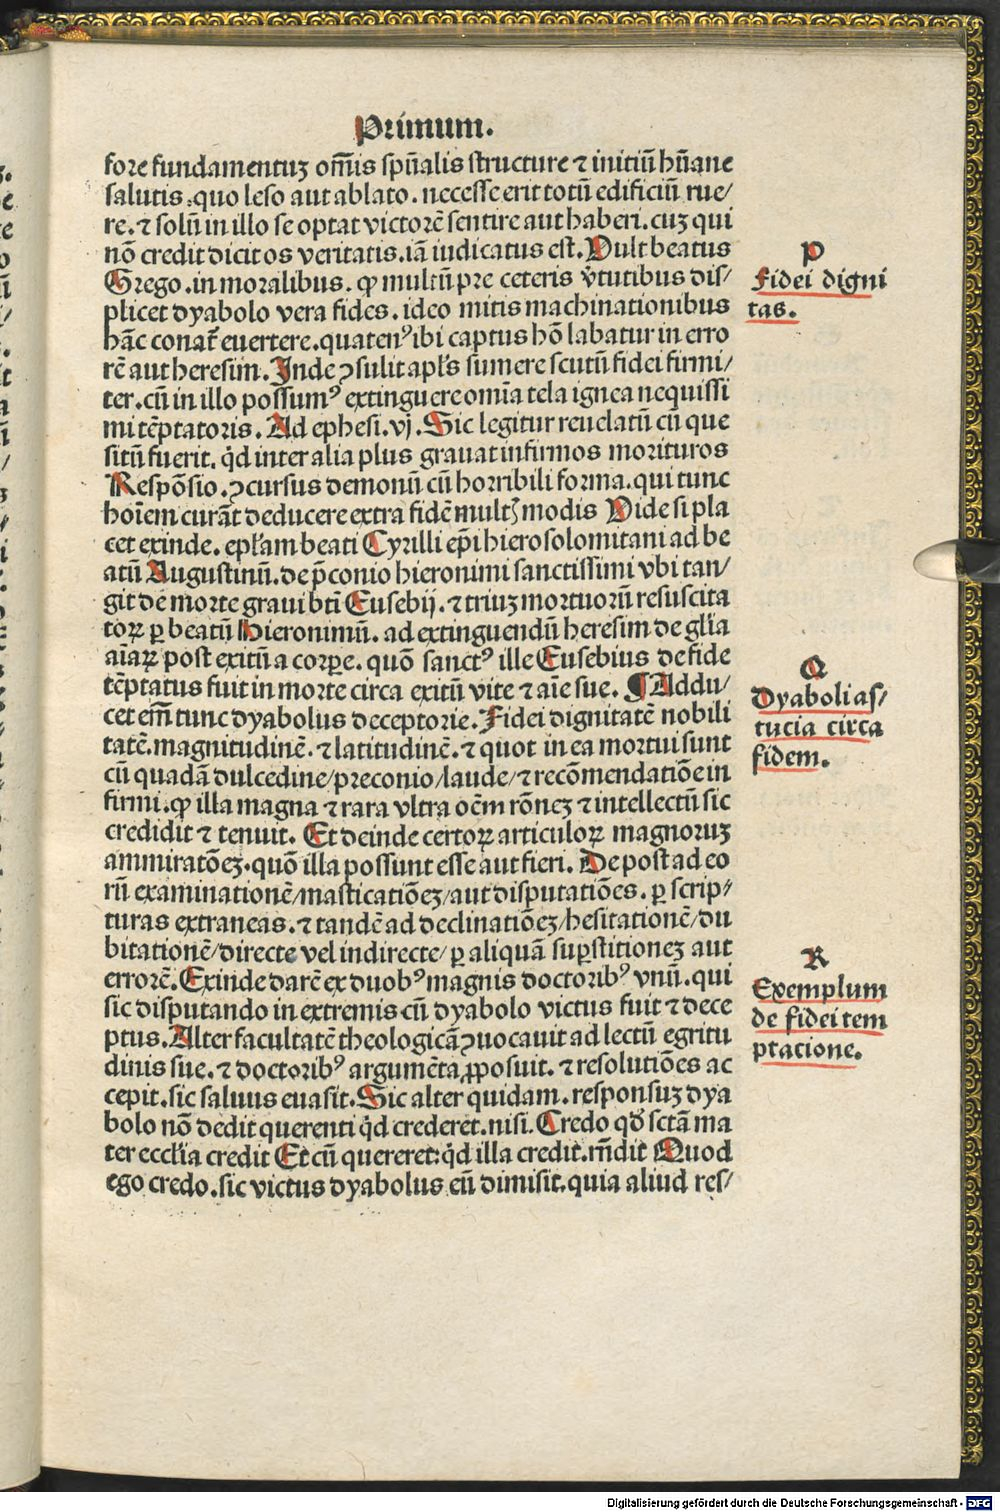 Primum.
fore fundamentuꝫ om̄is spūalis structure ⁊ initiū hūane
salutis. quo leso aut ablato. necesse erit totū edificiū rue/
re. ⁊ solū in illo se optat victorē sentire aut haberi. cuꝫ qui
nō credit dicit os veritatis. iā iudicatus est. Uult beatus
Grego. in moralibus. ꝙ multū pre ceteris v̄tutibus dis/
plicet dyabolo vera fides. ideo mitis machinationibus
hāc conat̄ euertere. quatenꝰ ibi captus hō labatur in erro
rē aut heresim. Inde ↄsulit apl̄s sumere scutū fidei firmi/
ter. cū in illo possumꝰ extinguere omīa tela ignea nequissi
mi tēptatoris. Ad ephesi. vj. Sic legitur reuelatū cū que
situ̅ fuerit. qd̄ inter alia plus grauat infirmos morituros
Respōsio. ↄcursus demonū cū horribili forma. qui tunc
hoīem curāt deducere extra fidē multꝭ modis Uide si pla
cet exinde. epl̄am beati Cyrilli ep̄i hierosolomitani ad be
atū Augustinū. de p̄conio hieronimi sanctissimi vbi tan/
git de morte graui bt̄i Eusebij. ⁊ triuꝫ mortuorū resuscita
toꝝ ꝑ beatū Hieronimū. ad extinguendū heresim de gl̄ia
aīaꝝ post exitū a corꝑe. quō sanctꝰ ille Eusebius de fide
tēptatus fuit in morte circa exitū vite ⁊ aīe sue. ¶ Addu/
cet em̄ tunc dyabolus deceptorie. Fidei dignitatē nobili
tatē. magnitudinē. ⁊ latitudinē. ⁊ quot in ea mortui sunt
cū quadā dulcedine/ preconio/ laude/ ⁊ recōmendatiōe in
firmi. ꝙ illa magna ⁊ rara vltra oēm rōneꝫ ⁊ intellectū sic
credidit ⁊ tenuit. Et deinde certoꝝ articuloꝝ magnoruꝫ
ammiratōeꝫ. quō illa possunt esse aut fieri. De post ad eo
rū examinationē/ masticatiōeꝫ/ aut disputatiōes. ꝑ scrip/
turas extraneas. ⁊ tandē ad declinatiōeꝫ/ hesitationē/ du
bitationē/ directe vel indirecte/ ꝑ aliquā suꝑstitioneꝫ aut
errorē. Exinde darē ex duobꝰ magnis doctoribꝰ vnū. qui
sic disputando in extremis cū dyabolo victus fuit ⁊ dece
ptus. Alter facultatē theologicā ↄuocauit ad lectū egritu
dinis sue. ⁊ doctoribꝰ argumēta ꝓposuit. ⁊ resolutiōes ac
cepit. sic saluus euasit. Sic alter quidam. responsuꝫ dya
bolo nō dedit querenti qd̄ crederet. nisi. Credo qd̄ sctā ma
ter eccl̄ia credit Et cū quereret: qd̄ illa credit. rn̄dit Quod
ego credo. sic victus dyabolus eū dimisit. quia aliud res/
P
Fidei digni
tas.
Q
Dyaboli as/
tucia circa
fidem.
R
Exemplum
de fidei tem
ptacione.
Digitalisierung gefördert durch die Deutsche Forschungsgemeinschaft - DFG